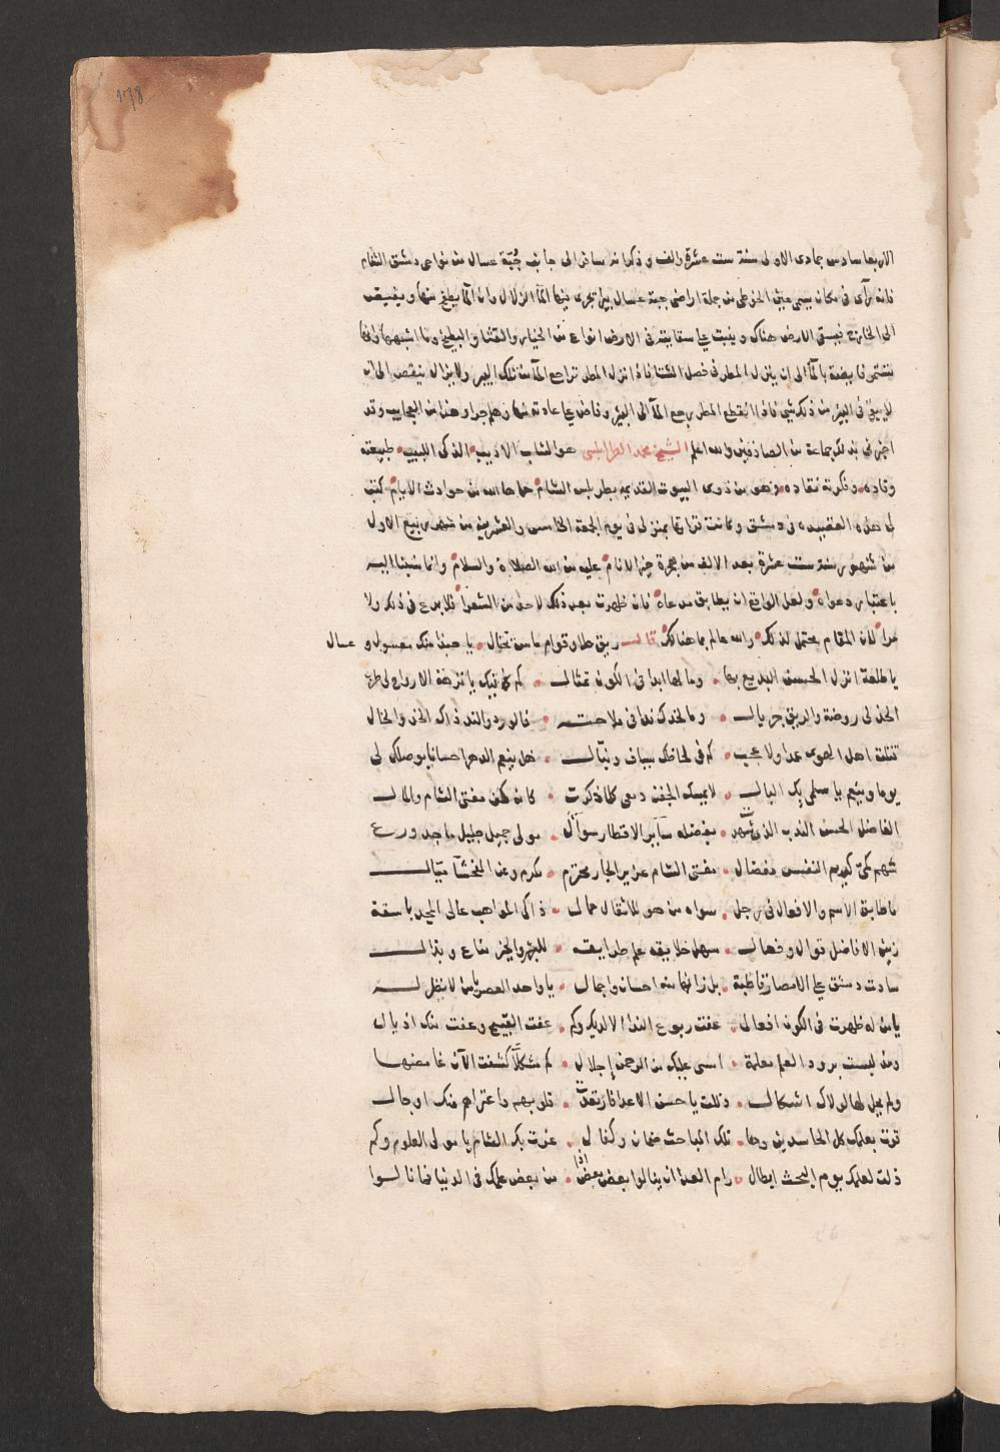 ١٣٨
الاربعا سادس جمادى الاولى سنة ست عشرة والف وذكر انه سافر الى جانب جُبّة عسال من نواحى دمشق الشام
فانه رأى فى مكان يسمى عين من جملة اراضى جبة عسال بيرا تجرى فيها المآ الزلال وان المآ يطلع منها ويفيض
الى الخارج فيسقى الارض هناك وينبت على سقايته فى الارض انواع من الخيار والقثا والبطيخ وما اشبهها وانها
تستمر فايضة بالمآ الى ان ينزل المطر فى فصل الشتا فاذا نزل المطر تراجع المآ من تلك البير ولا يزال ينقص الى ان
لا يبقى فى البير من ذلك شى فاذا انقطع المطر رجع المآ الى البير وفاض على عادته منها وهلم جرا وهذا من العجايب وقد
اخبرنى بذلك جماعة من الصادقين والله اعلم الشيخ محمد الطرابلسى هو الشاب الاديب الذكى اللبيب طبيعته
وقاده وفكرته نقاده وهو من ذوى البيوت القديمه بطرابلس الشام حماها الله من حوادث الايام كتب
لى هذه القصيده فى دمشق وكانت قراتها بمنزلى فى يوم الجمعة الخامس والعشرين من شهر ربيع الاول
من شهور سنة ست عشرة بعد الالف من هجرة خير الانام عليه من الله الصلاة والسلام وانما نسبناها اليه
باعتبار دعواه ولعل الواقع ان يطابق مدعاه فان ظهرت بعد ذلك لاحد من الشعرا فلا بدع فى ذلك ولا
مرا لان المقام محتمل لذلك والله عالم بما هنالك قال ريق حلا وقوام ماس يختال يا حبذا منك معسول وعسال
يا طلعة انزل الحسن البديع بها وما لها ابدا فى الكون تمثال كم فيك يا نزهة الارواح لى
الخد لى روضة والريق جريال وما لخدك ندا فى ملاحته فالورد والند ذاك الخد والخال
قتلت اهل الهوى عمدا ولا عجب كم فى لحاظك سياف ونبّال هل ينعم الدهر احسانا بوصلك لى
يوما وينعم يا سلمى بك البال لا يمسك الجفن دمعى كلما ذكرت كانه كف مفتى الشام والمال
الفاضل الحسن الندب الذى شهد بفضله سآير الاقطار سوآل مولى جميل جليل ماجد ورع
شهم كمىّ كريم النفس مفضال مفتى الشام عزيز الجار محترم مكرم وعن الفحشآ ميّال
ما طابق الاسم والافعال فى رجل سواه من هو للاثقال حمال ذاكى المواهب عالى المجد باسقة
زين الافاضل قوال وفعال سهل خلايقه علم طرايقه للبر والخير مناع وبذال
سادت دمشق على الامصار قاطبة بل زانها منه احسان واجمال يا واحد العصر يا من لا نظير له
يا من له ظهرت فى الكون افعال عفت ربوع الندا الا لديك وكم عفت القبيح وعفت منك اذيال
ومذ لبست برود العلم معلمة امسى عليك من الرحمن إجلال كم مشكلًا كشفت الآن غامضها
ولم يحل لها لولاك اشكال وذلت يا حسن الاعدا فارتعدت قلوبهم واعتراهم منك اوجال
قرت بعلمك كل الحاسدين وها تلك المباحث ضمان وكفال عزت بك الشام يا مولى العلوم وكم
ذلت لعلمك يوم البحث ابطال رام العدا ان ينالوا بعض بعض اذا من بعض علمك فى الدنيا فما نالوا